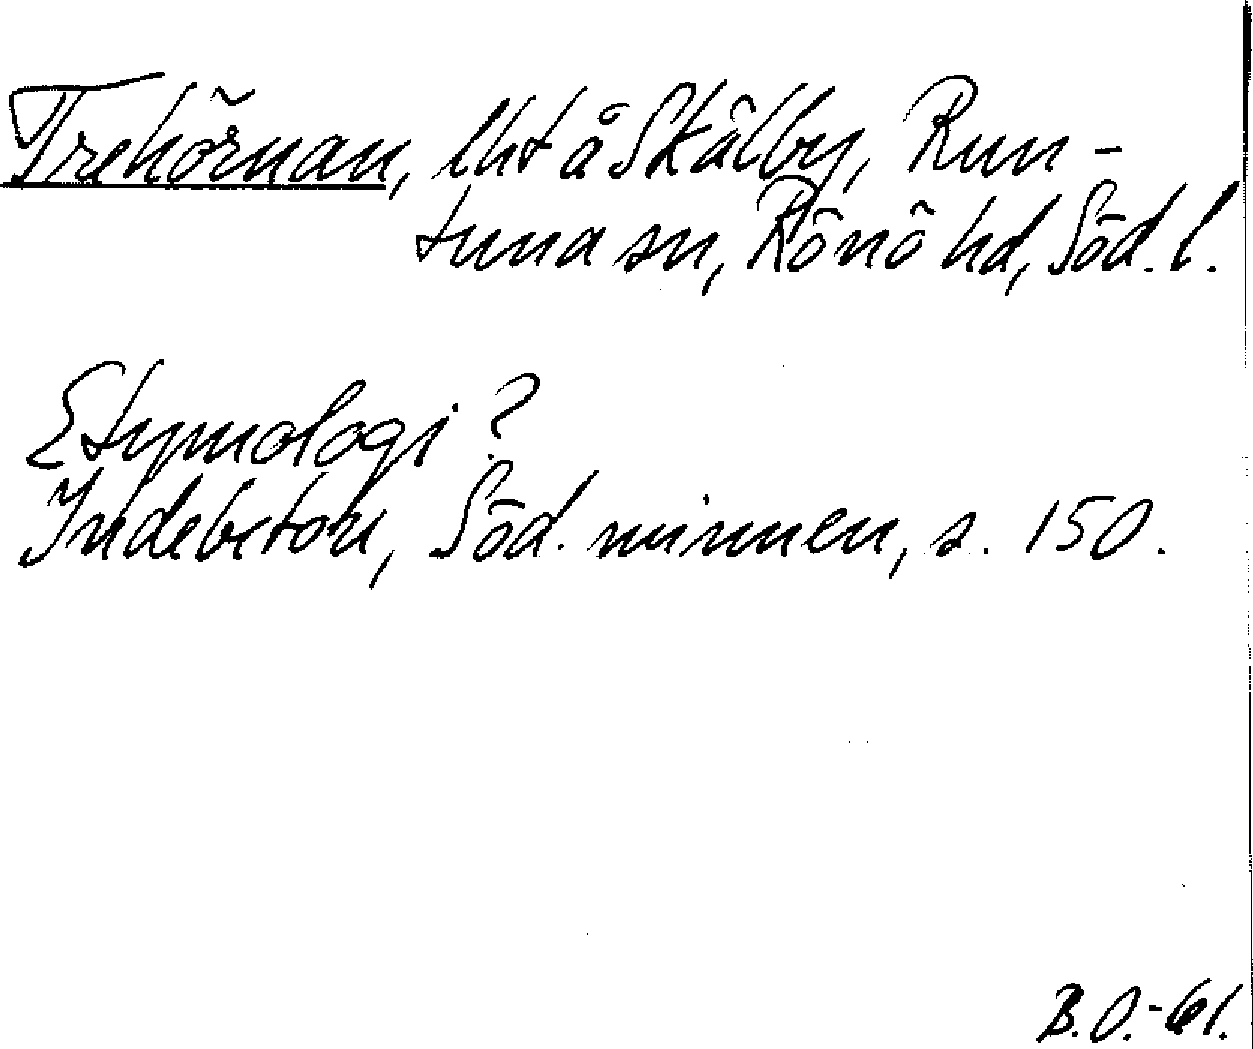 Trehörnan, lht å Skälby, Run-
tuna sn, Rönö hd, Söd. l.
Etymologi?
Indebetou, Söd. minnen, s. 150.
B.O.-61.